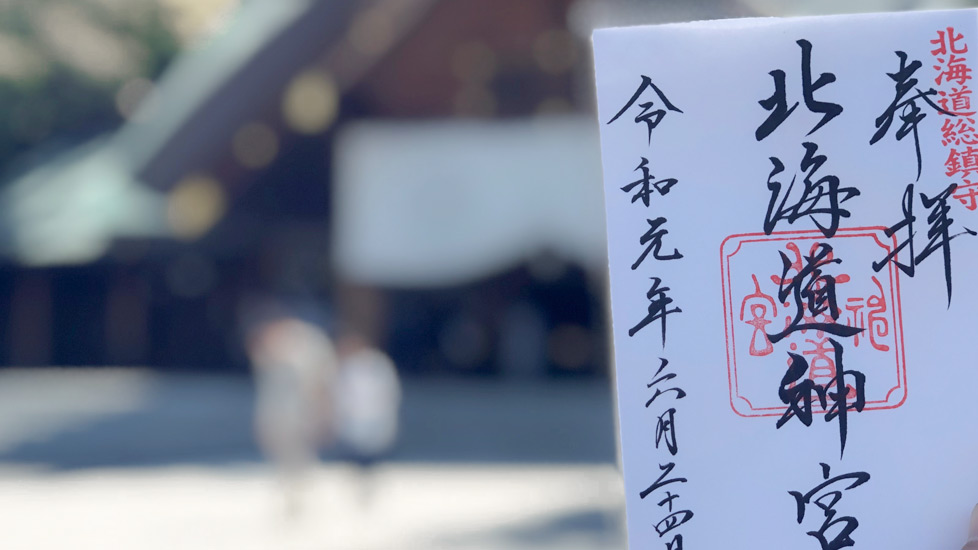 北海道総鎮守
奉拝
北海道神宮
令和元年六月二十四日